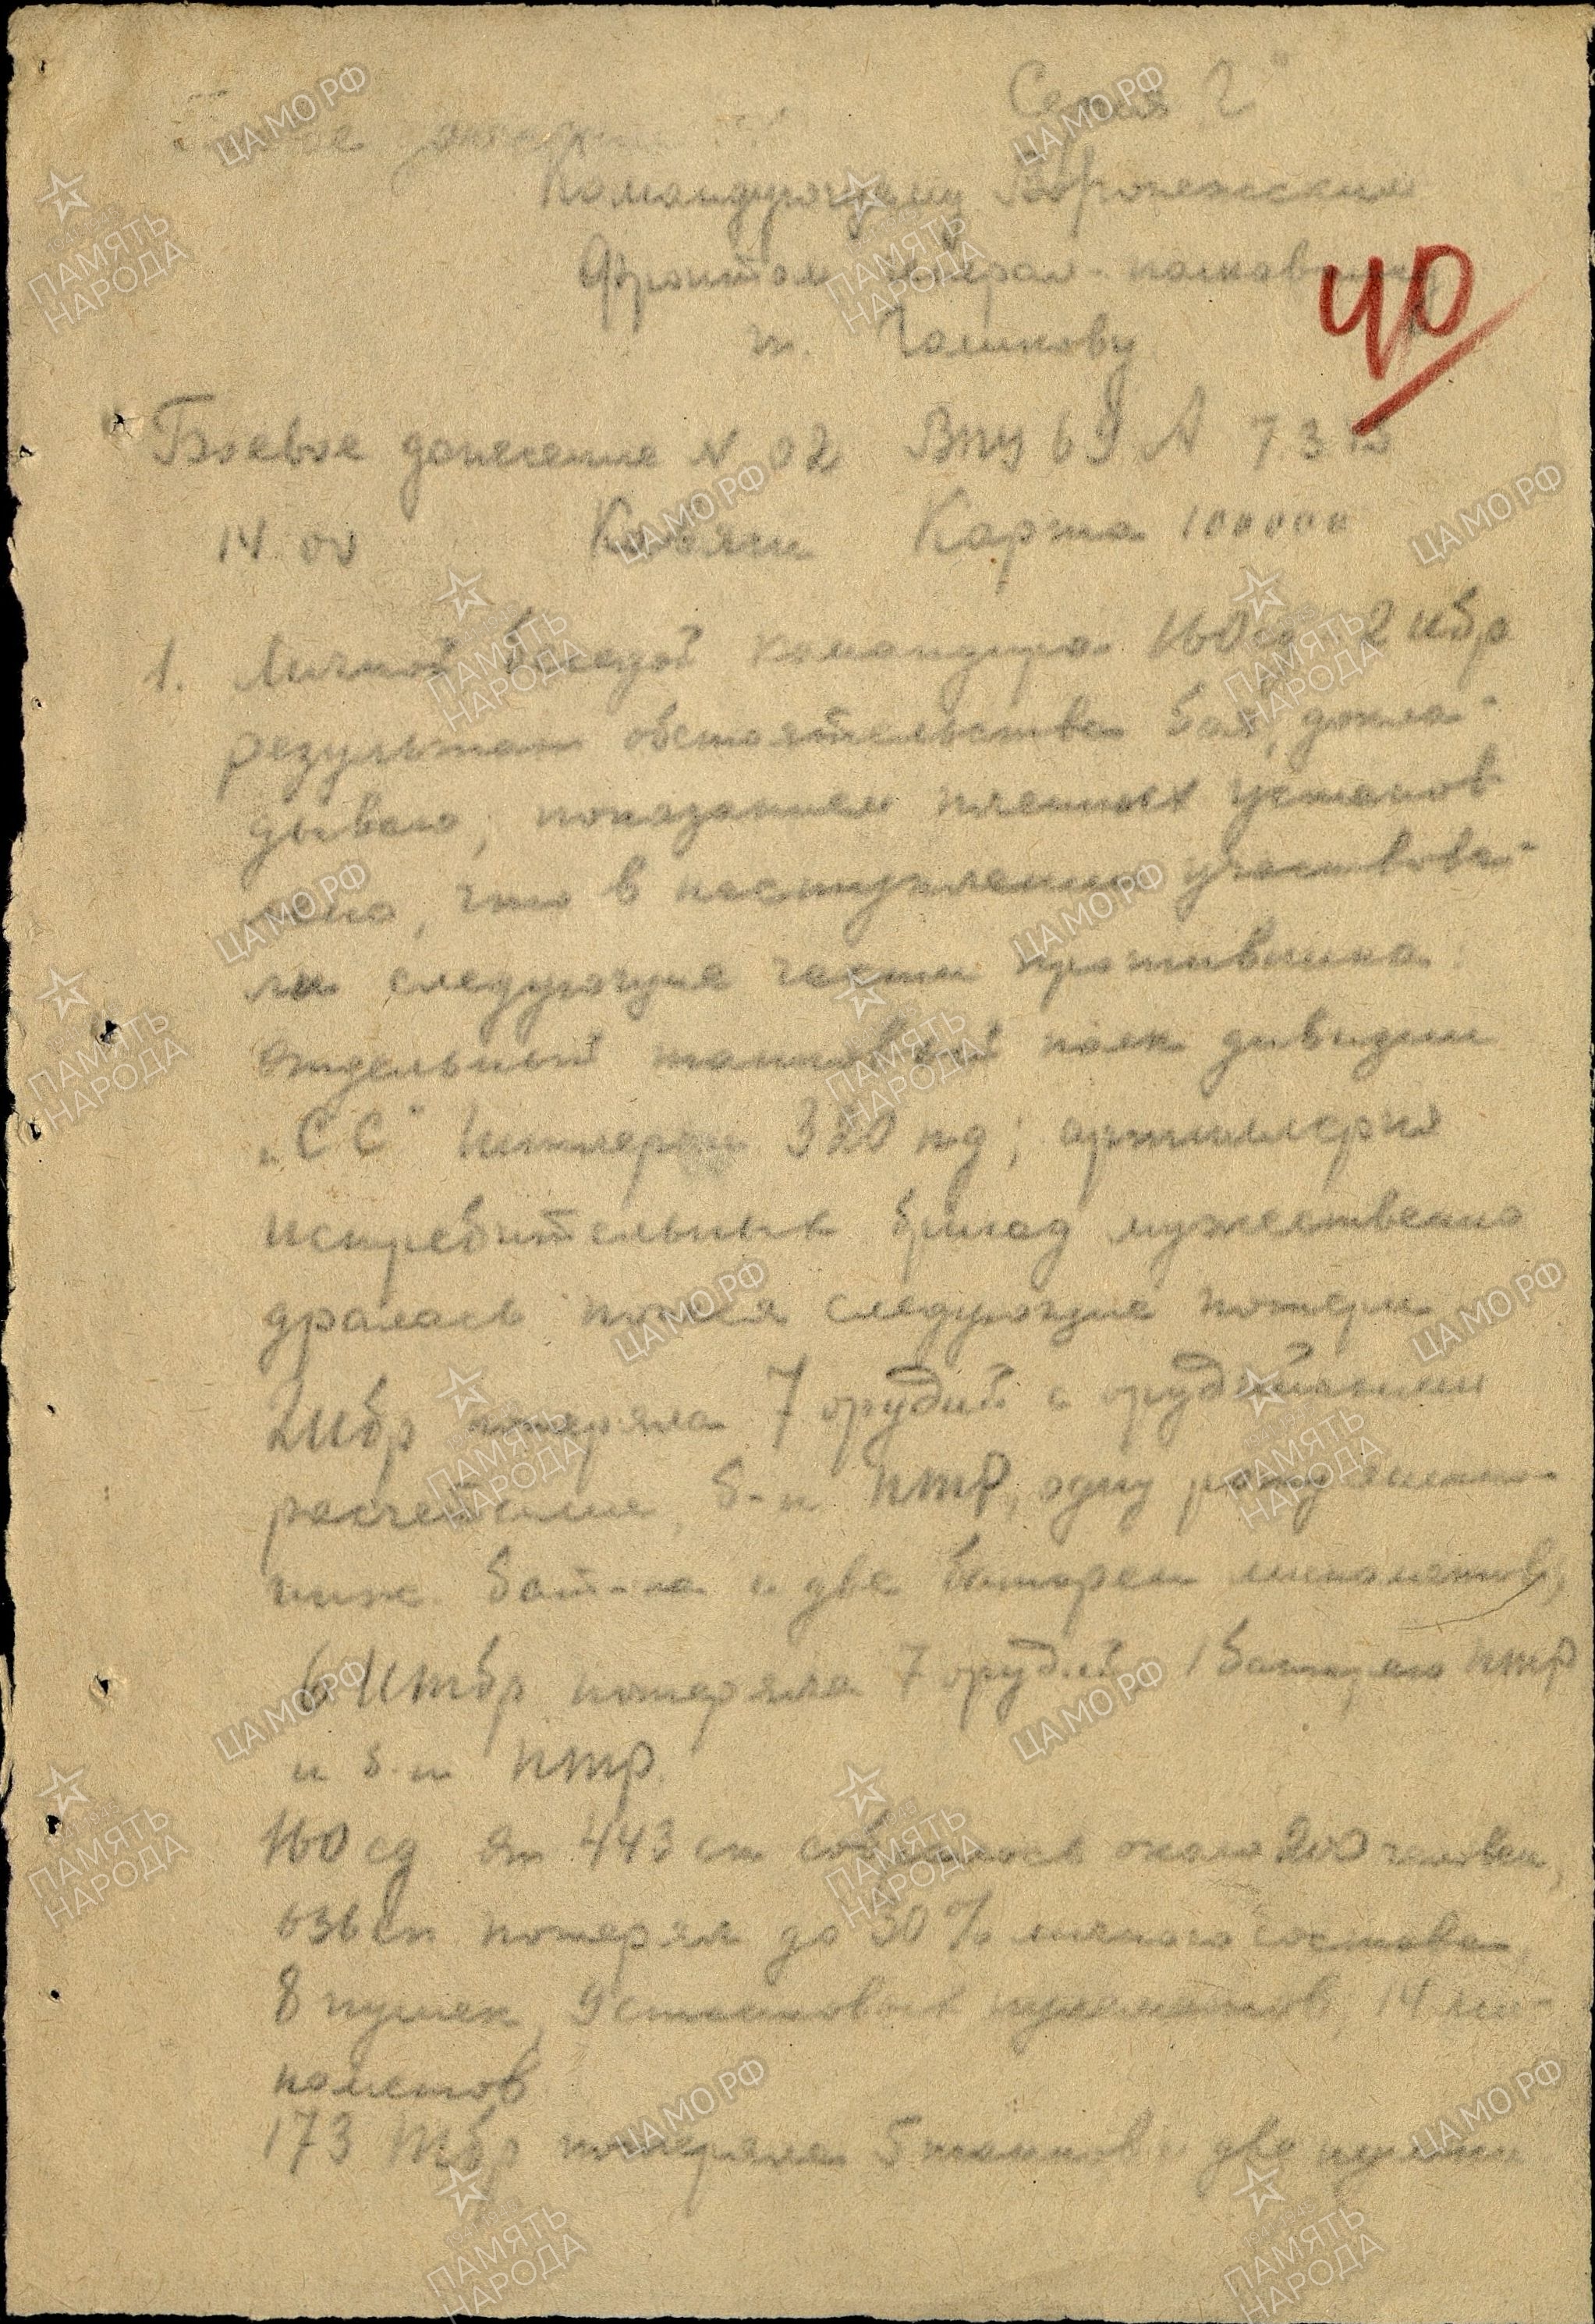 Серия Г"
Командующему Воронежским
фронтом генерал-полковнику
т. Голикову
40
Боевое донесение № 02 ВПУ 69 А 7.3
14 00 Карта 100000
1. Личной беседой командира 160 сд 2 ибр
результат обстоятельства боя, докла-
дываю, показанием пленных установ
лено, что в наступлении участвова-
ли следующие части противника:
отдельный танковый полк дивизии
"СС" 320 пд; артиллерия
истребительных бригад мужественно
дралась следующие потери
2 ибр потеряла 7 орудий с орудийными
расчетами, б-н ПТР, одну роту
б-на и две батареи минометов,
потеряла 7 орудий, 1 батарею ПТР
и б-н ПТР.
160 сд от 443 сп собралось около 200 человек,
636 сп потерял до 30% личного состава,
8 пушек, 9 станковых пулеметов, 14 ми-
нометов
173 тбр потеряла 5 танков и две пушки
ЦАМО РФ
ПАМЯТЬ
НАРОДА